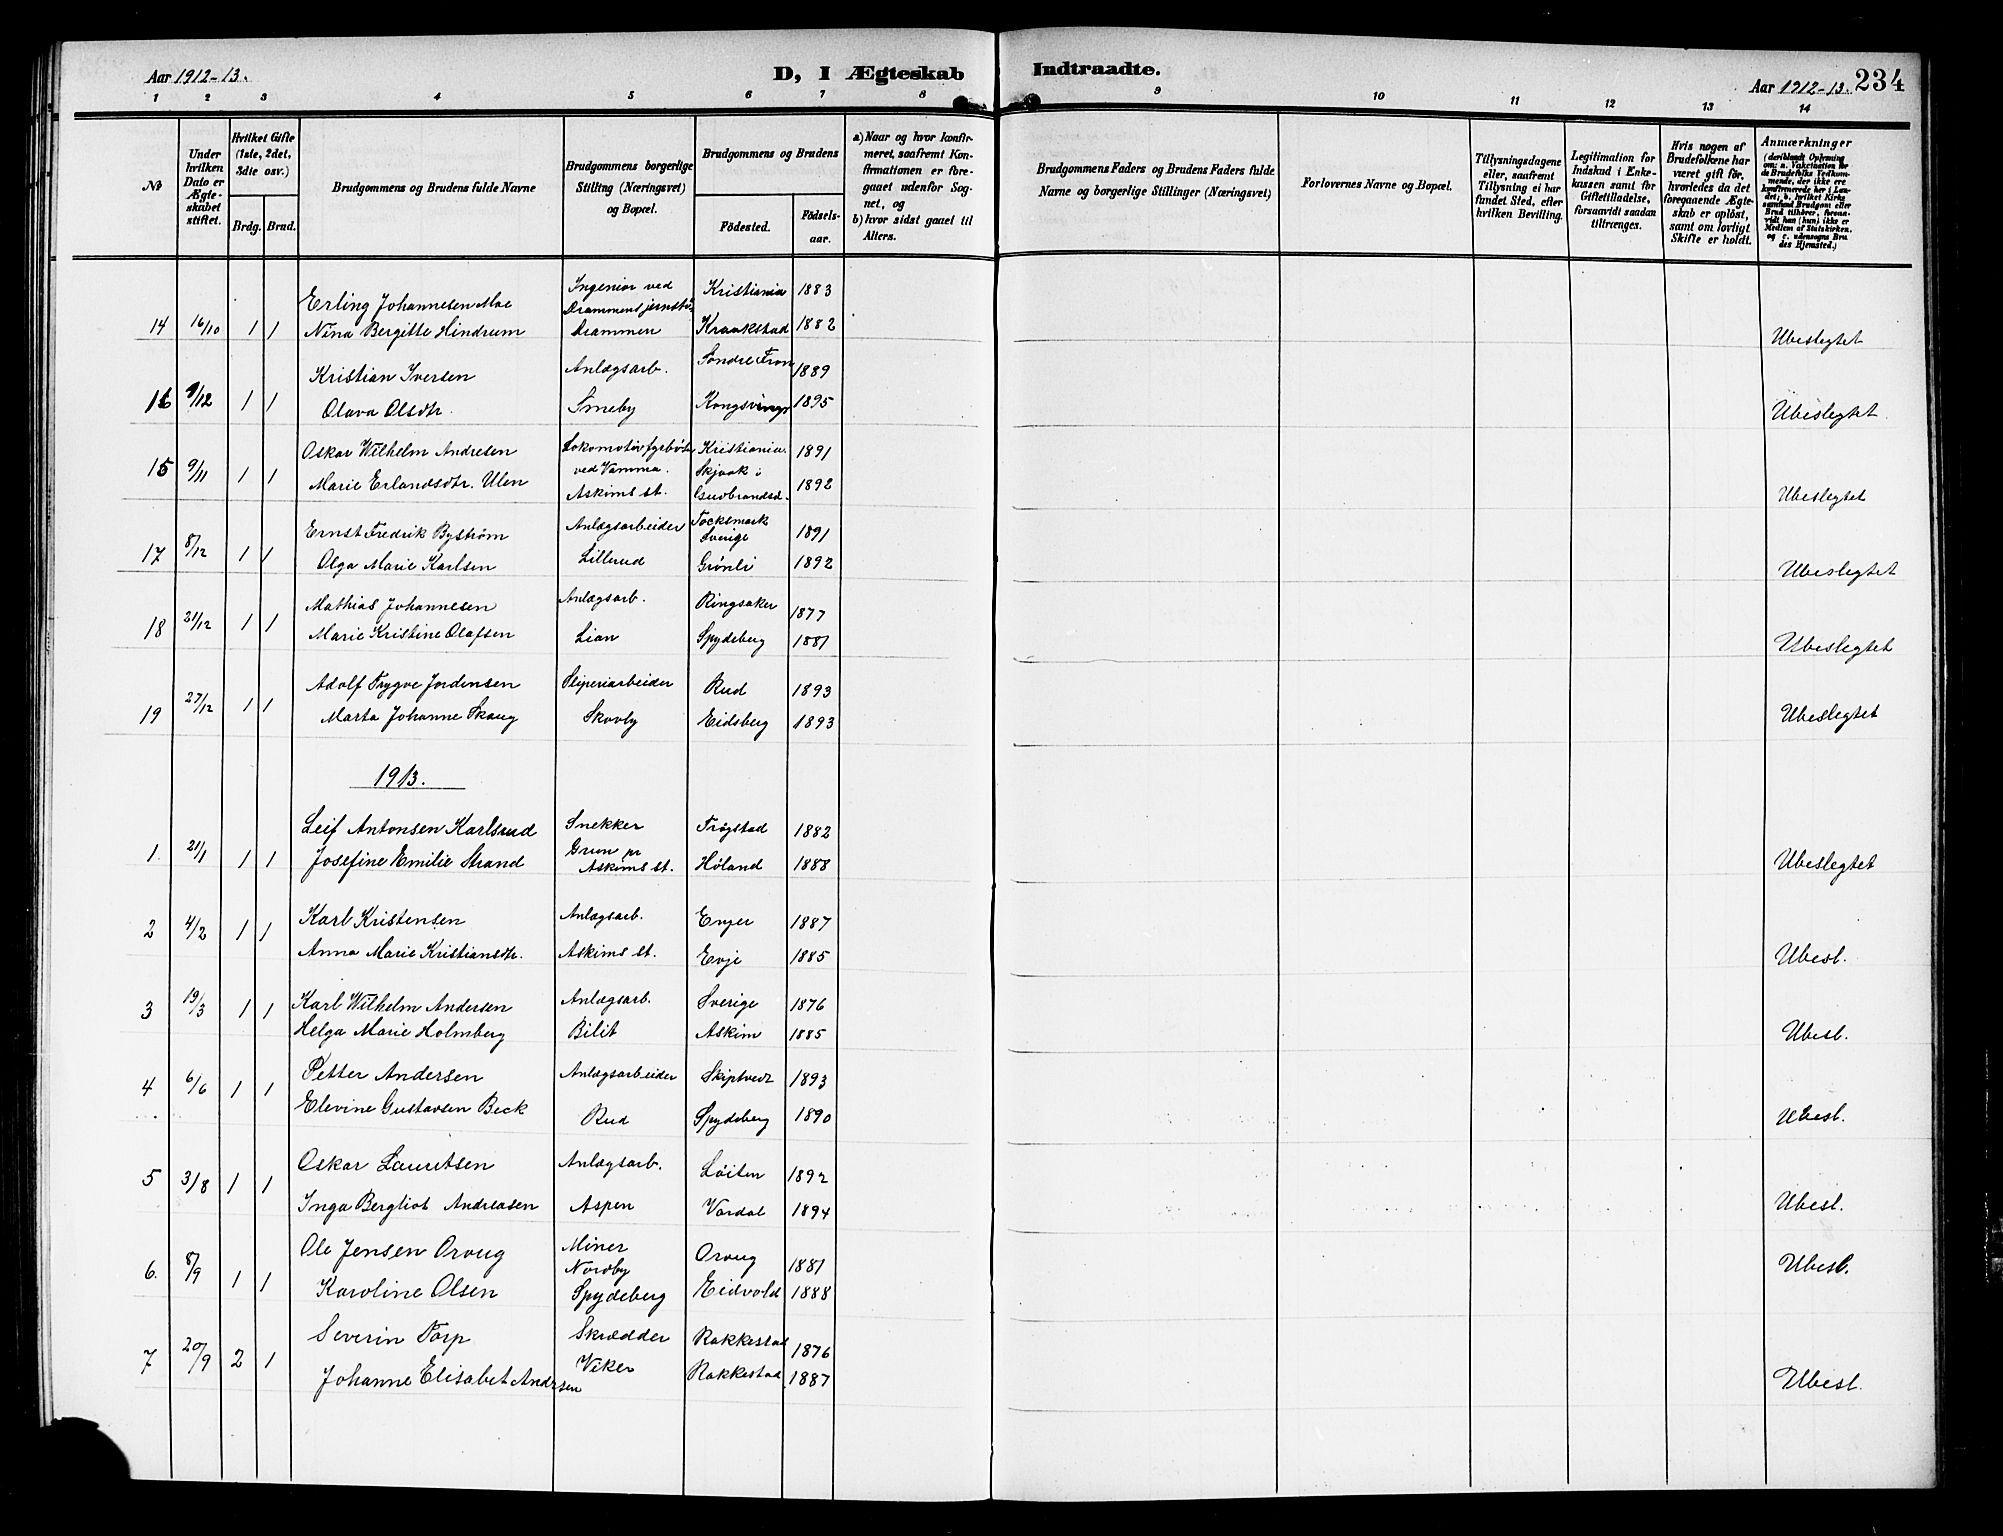 Aar 1912-13.
D, I Ægteskab
Indtraadte.
Aar 1912-13.
234
1 2 3 4 5 6 7 8 9 10 11 12 13 14
No
Under hvilken Dato er Ægteskabet stiftet.
Hvilket Gifte (1ste, 2det, 3die osv.)
Brdg. Brud.
Brudgommens og Brudens fulde Navne
Brudgommens borgerlige Stilling (Næringsvei) og Bopæl.
Brudgommens og Brudens
Födested.
Födselsaar.
a) Naar og hvor konfirmeret, saafremt Konfirmationen er foregaaet udenfor Sognet, og
b) hvor sidst gaaet til Alters.
Brudgommens Faders og Brudens Faders fulde Navne og borgerlige Stillinger (Næringsvei)
Forlovernes Navne og Bopæl.
Tillysningsdagene eller, saafremt Tillysning ei har fundet Sted, efter hvilken Bevilling.
Legitimation for Indskud i Enkekassen samt for Giftetilladelse, forsaavidt saadan tiltrænges.
Hvis nogen af Brudefolkene har været gift før, hvorledes da det foregaaende Ægteskab er opløst, samt om lovligt Skifte er holdt.
Anmærkninger
(deriblandt Oplysning om: a. Vakcination for de Brudefolks Vedkommende, der ikke ere konfirmerede her i Landet; b. hvilket Kirkesamfund Brudgom eller Brud tilhører, forsaavidt han (hun) ikke er Medlem af Statskirken, og c. udensogns Brudes Hjemsted.)
Erling Johannesen Moe Ingeniør ved Kristiania 1883
Drammens jernstø.
14 16/10 1 1 Nina Bergitte Hindrum Drammen Kraakstad 1882 Ubeslegtet
Kristian Iversen Anlægsarb. Søndre Fron 1889
16 9/12 1 1 Olava Olsdtr. Smeby Kongsvinger 1895 Ubeslegtet.
Oskar Wilhelm Andresen Lokomotivfyrbøter Kristiania 1891
15 9/11 1 1 ved Vamma. Skjaak i
Marie Erlandsdtr. Ulen Askims st. Gudbrandsd. 1892 Ubeslegtet
Ernst Fredrik Byström Anlægsarbeider Tocksmark Sverige 1891
17 8/12 1 1 Olga Marie Karlsen Lillerud Grønli 1892 Ubeslegtet
Mathias Johannesen Anlægsarb. Ringsaker 1877
18 21/12 1 1 Marie Kristine Olafsen Lian Spydeberg 1881 Ubeslegtet
Adolf Trygve Jordensen Sliperiarbeider Rud 1893
19 27/12 1 1 Marta Johanne Skaug Skovly Eidsberg 1893 Ubeslegtet
1913.
Leif Antonsen Karlsrud Snekker Trøgstad 1882
1. 21/1 1 1 Josefine Emilie Strand Grun pr Askims st. Høland 1888 Ubeslegtet
Karl Kristensen Anlægsarb. Enger 1887
2 4/2 1 1 Anna Marie Kristiansdtr. Askims st. Evje 1885 Ubesl.
Karl Wilhelm Andersen Anlægsarb. Sverige 1876
3 19/3 1 1 Helga Marie Holmberg Bilit Askim 1885 Ubesl.
4 6/6 1 1 Petter Andersen Anlægsarbeider Skiptvedt 1893
Elevine Gustavsen Beck Rud Spydeberg 1890 Ubesl.
Oskar Lauritsen Anlægsarb. Løiten 1892
5 3/8 1 1 Inga Bergliot Andreasen Aspen Vardal 1894 Ubesl.
Ole Jensen Orvug Miner Orvug 1881
6. 8/9 1 1 Nordby Ubesl.
Karoline Olsen Spydeberg Eidvold 1888
Severin Torp Skrædder Rakkestad 1876
7 20/9 2 1 Johanne Elisabet Andersen Viker Rakkestad 1887 Ubesl.